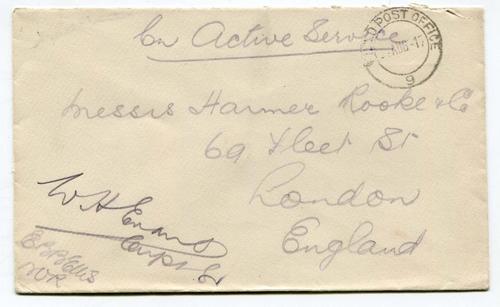 On Active Service
FIELD POST OFFICE
AUG-17
9
Messrs Harmer Rooke & Co
69 Fleet St
London
England
W H Evans
Capt